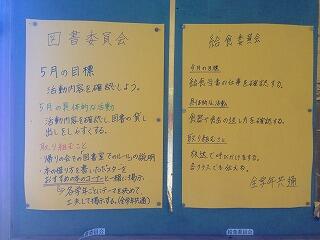 図書委員会
5月の目標
活動内容を確認しよう。
5月の具体的な活動
活動内容を確認し、図書の貸し
出しをしやすくする。
取り組むこと
帰りの会での図書室でのルールの説明
本の借り方を書いたポスター
おすすめの本のコーナーと一緒に掲示
各学年ごとにテーマを決めて、
工夫して掲示する。(全学年共通)
給食委員会
5月の目標
給食当番の仕事を確認する。
具体的な活動
食器や食缶の返し方を確認する。
取り組むこと
放送で呼びかけをする。
各クラスでも伝える。
全学年共通